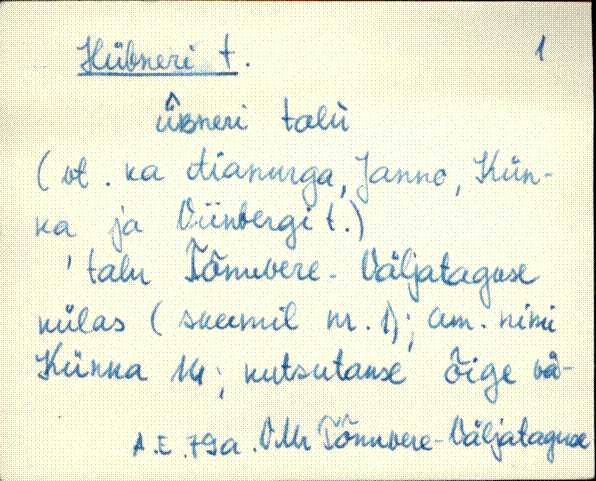 Hübneri t. 1
ũbneri talù
(vt. ka Aianurga, Janno, Kün-
ka ja Viinbergi t.)
'talu Tõnuvere-Väljataguse
külas (skeemil nr. 1); am. nimi
Künka 14; kutsutakse õige vä-
A.E. 79a. VMr Tõnuvere-Väljataguse